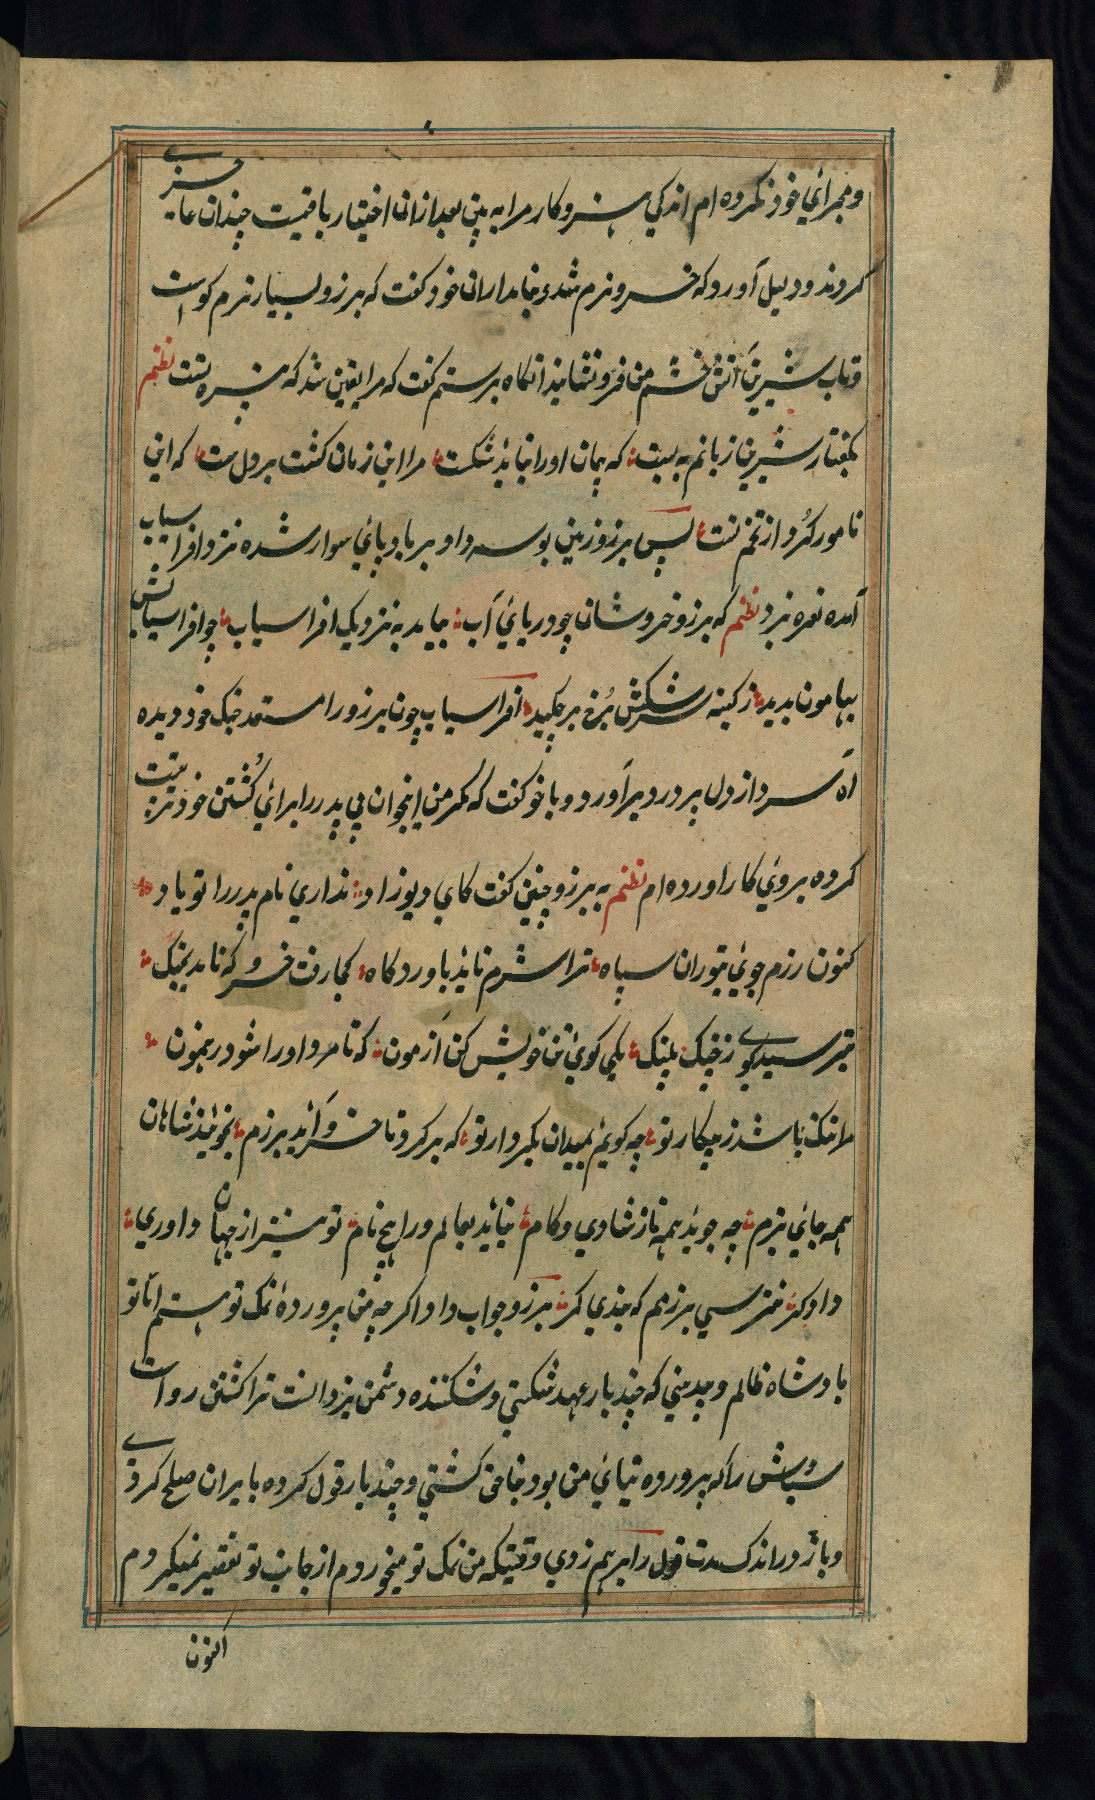 ومجرائي خود نکرده ام اندکي هنر وکار مرا به بين بعد ازان اختيار باقيست چندان عاجزي
کردند ودليل آورد که خسرو نرم شده بنامداران خود گفت که برزو بسيار نرم گو است
وبآب شيرين آتش خشم من فرو نشانيد آنگاه برستم گفت که مرا يقين شد که نبيره تست نظم
بگفتار شيرين زبانم به بست که پيمان او را نبايد شکست مرا اين زمان گشت بر دل درست که اين
نامور گرد از تخم تست پس برزو زمين بوسه داد وبر بادپاي سوار شده نزد افراسياب
آمده نعره بزد نظم که برزو خروشان چو درياي آب بيامد به نزديک افراسياب چو افراسيابش
بهامون بديد ز کينه سرشکش برخ بر چکيد افراسياب چون برزو را مستعد جنگ خود ديده
آه سرد از دل پر درد برآورد وبا خود گفت که مگر من اينجوان بي پدر را براي کشتن خود تربيت
کرده بروي کار آورده ام نظم به برزو چنين گفت کاي ديوزاد نداري نام پدر را تو ياد
کنون رزم جوئي بتوران سپاه ترا شرم نايد باوردگاه کجا رفت خسرو که نامد بجنگ
بترسيد گوي ز جنگ پلنگ يکي گوي تن خويش کن آزمون که تا مر او را شود رهنمون
مرا ننگ باشد ز پيکار تو چه گويم بميدان بکردار تو که برگرد تا خسرو آيد برزم بخوانند شاهان
همه جاي بزم چه جويد همه ناز شادي وکام نيايد بعالم ورا هيچ نام تو بيني از جهان داوري
دادگر نترسي برزم که بندي کمر برزو جواب داد اگرچه من پرورده نمک تو هستم اما تو
بادشاه ظالم وبيديني که چندبار عهد شکستي وشکننده دشمن يزدانست ترا کشتن رواست
سياوش را که پرورده نياي من بود بناحق کشتي وچندبار قول کرده با ايران صلح کردي
وباز در اندک مدت قول را برهم زدي وقتيکه من نمک تو ميخوردم از جانب تو تقصير نميکردم
اکنون